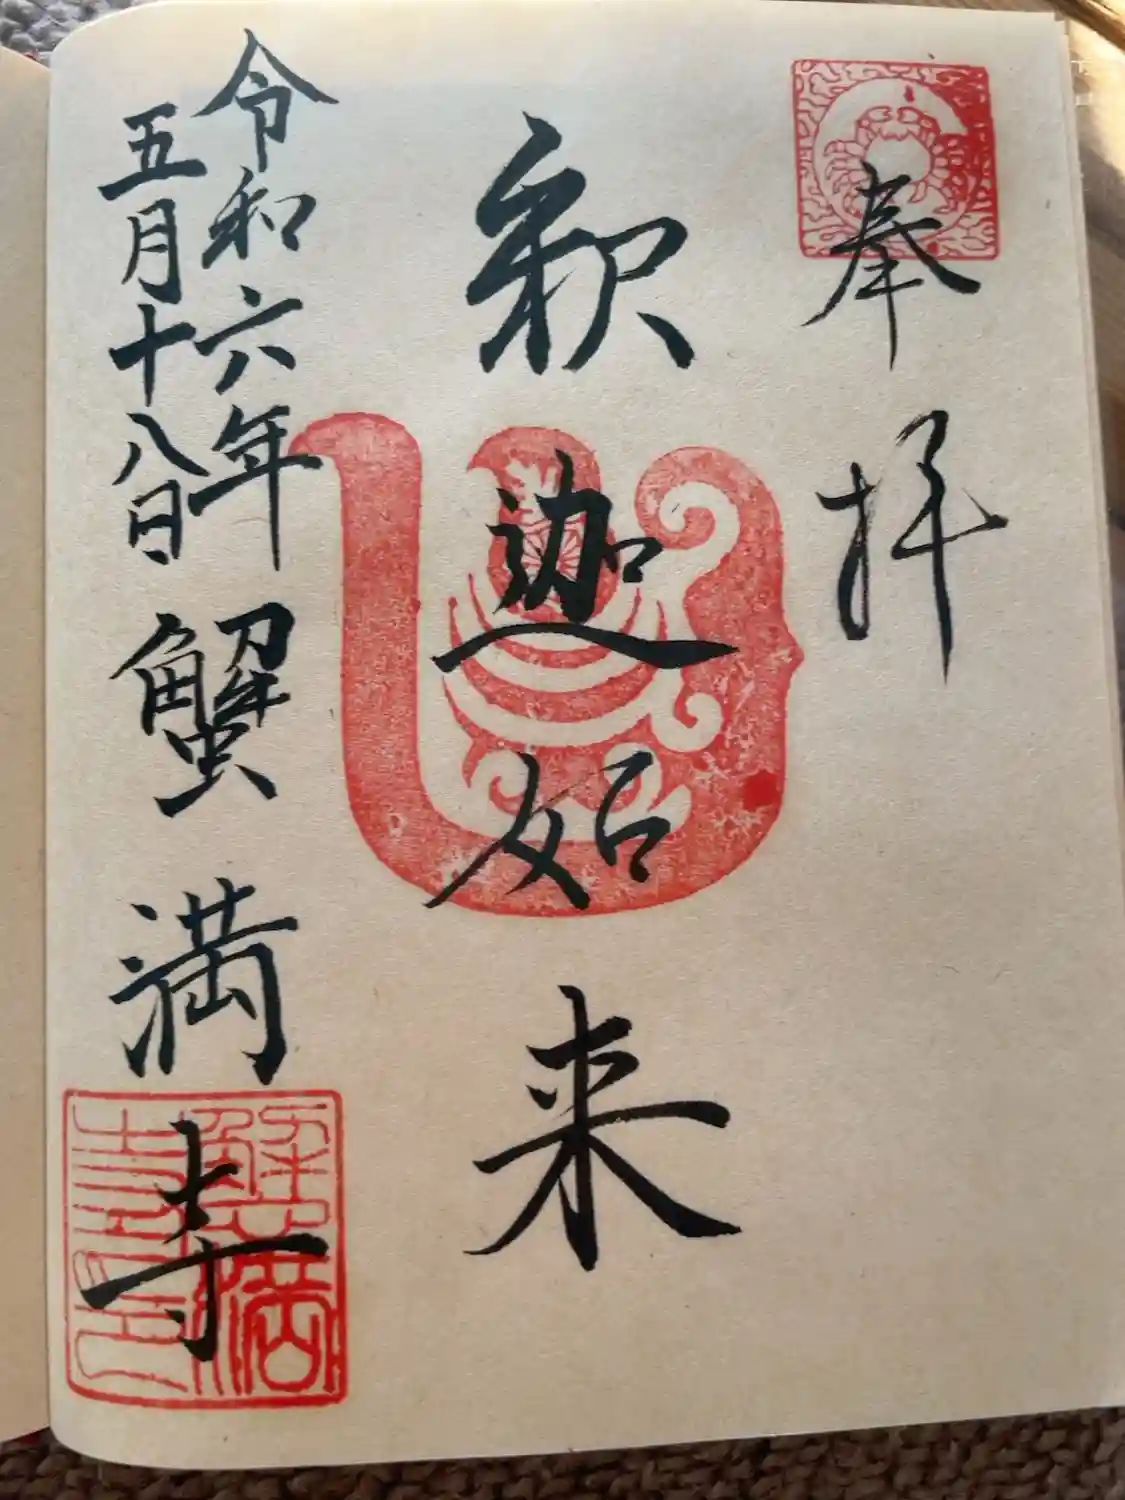 奉拝
釈迦如来
令和六年
五月十八日
蟹満寺
蟹満寺印